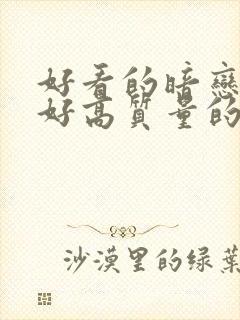 好看的暗戀
好高质量的
沙漠里的绿葉